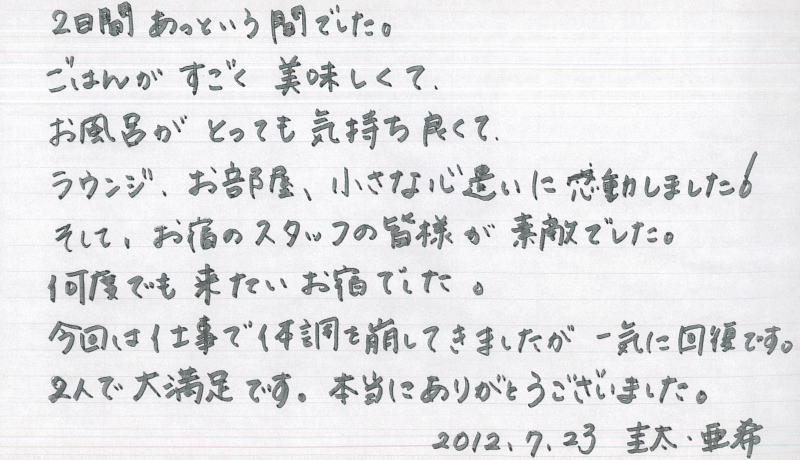 2日間 あっという間でした。
ごはんが すごく 美味しくて、
お風呂が とっても 気持ち良くて、
ラウンジ、お部屋、小さな心遣いに感動しました!
そして、お宿のスタッフの皆様が 素敵でした。
何度でも 来たい お宿でした。
今回は仕事で体調を崩してきましたが 一気に回復です。
2人で大満足です。本当にありがとうございました。
2012.7.23 圭太・亜希